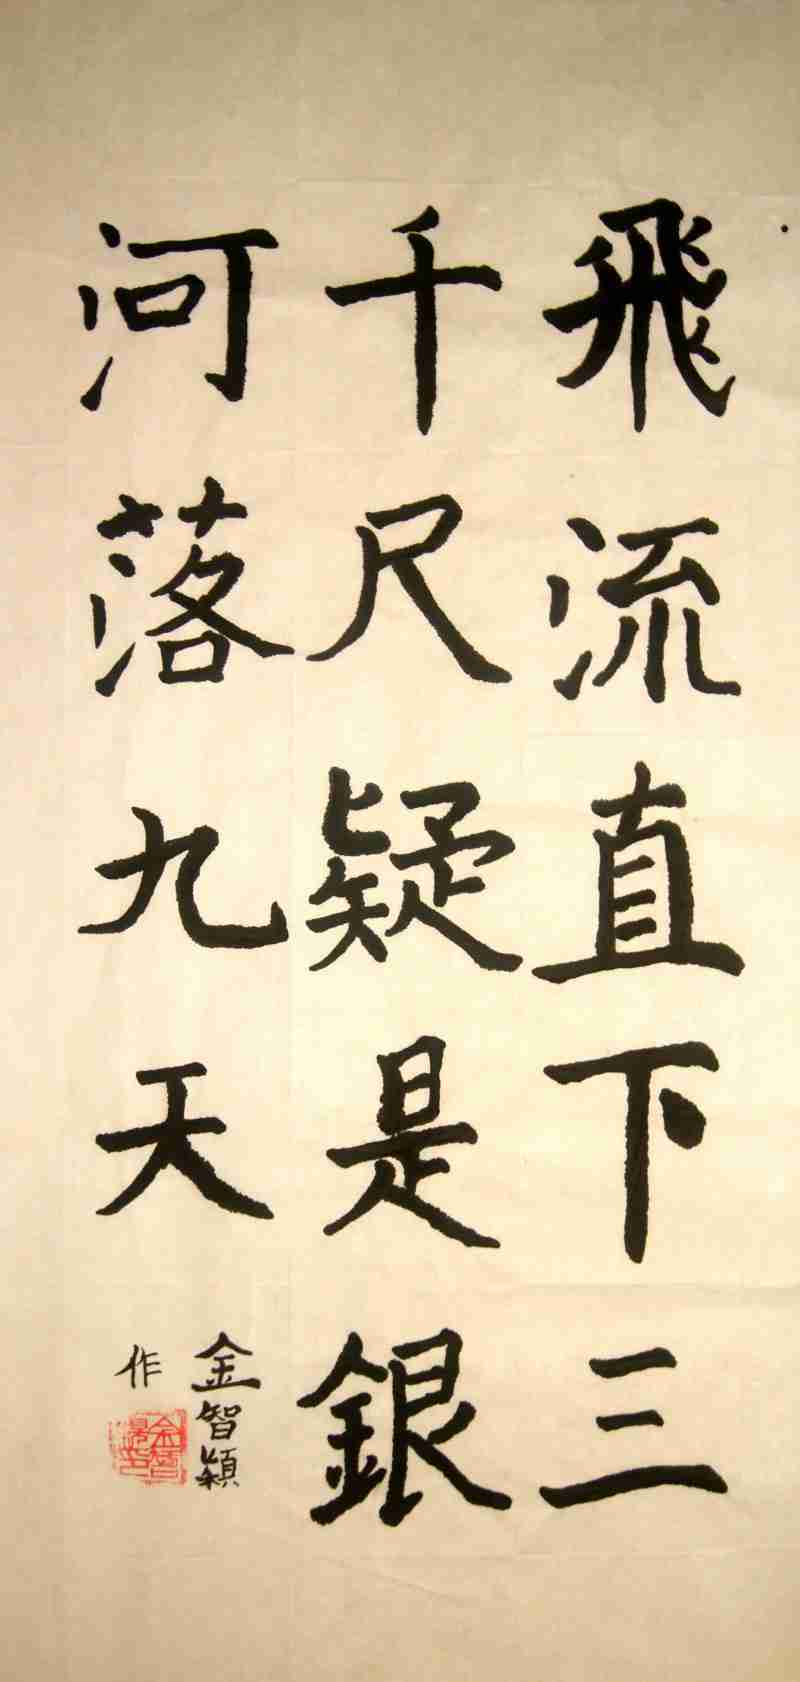 飛流直下三
千尺疑是銀
河落九天
金智穎
作